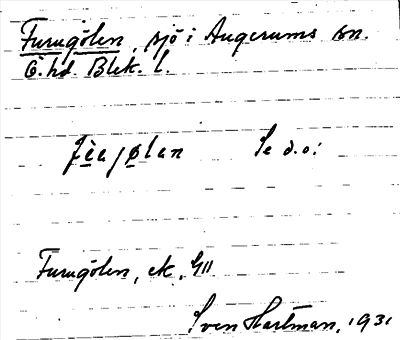 Furugölen, sjö i Augerums sn.
Ö. hd. Blek. l.
Se d.o.:
Furugölen, ek. G11
Sven Hartman, 1931